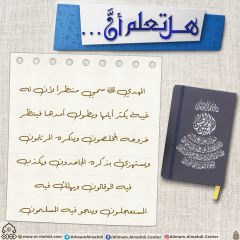 هل تعلم أنَّ...
المهدي ﷺ سمي منتظرا لأن له
غيبة يكثر أيامها ويطول أمدها فينتظر
خروجه المخلصون وينكره المرتابون
ويستهزئ بذكره الجاحدون ويكذب
فيه الوقاتون ويهلك فيه
المستعجلون وينجو فيه المسلمون
www.m-mahdi.com
Alimam.Almahdi.Center